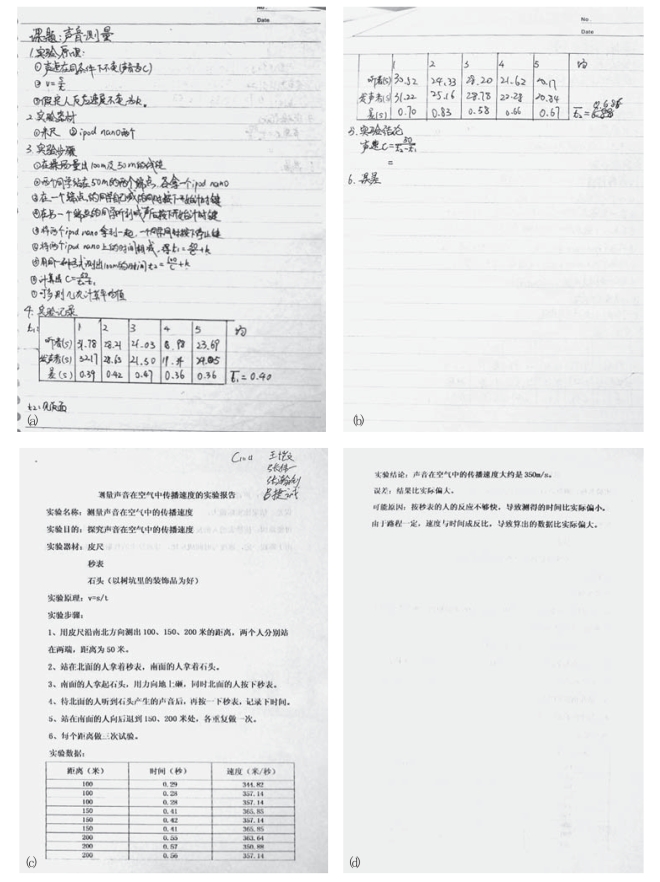 No.
Date
课题:声音测量
1.实验原理:
①声速在同条件下不变(声音为C)
② v=s/t
③假定人反应速度不变为k。
2.实验器材
①米尺 ②ipod nano两个
3.实验步骤
①在操场量出100m及50m的线段
②两个同学站在50m的两个端点,各拿一个ipod nano
③在一个端点的同学
④在另一个端点的同学听到喊声后按下开始计时键
⑤将两个ipod nano拿到一起,一个同学同时按下停止键
⑥将两个ipod nano上的时间相减,得t₁=50/C+k
⑦用同一种方式测出100m的时间t₂=100/C+k
⑧计算出C=50/t₂-t₁
⑨可多测几次计算平均值
4.实验记录
t₁: 1 2 3 4 5 均
听者(s) 31.78 28.21 21.03 8.98 23.69
发声者(s) 32.17 28.63 21.50 19.34 24.05
差(s) 0.39 0.42 0.47 0.36 0.36 t₁=0.40
t₂:见后面
(a)
No.
Date
1 2 3 4 5 均
听者(s) 30.52 24.33 28.20 21.62 20.17
发声者(s) 31.22 25.16 28.78 22.28 20.84
差(s) 0.70 0.83 0.58 0.66 0.67 t₂=
5.实验结论
声速C=50/t₂-t₁
=
6.误差
(b)
测量声音在空气中传播速度的实验报告
实验名称:测量声音在空气中传播速度
实验目的:探究声音在空气中的传播速度
实验器材:皮尺
秒表
石头(以树坑里的装饰品为好)
实验原理:v=s/t
实验步骤:
1、用皮尺沿南北方向测出100、150、200米的距离,两个人分别站
在两端,距离为50米。
2、站在北面的人拿着秒表,南面的人拿着石头。
3、南面的人拿起石头,用力向地上砸,同时北面的人按下秒表。
4、待北面的人听到石头产生的声音后,再按一下秒表,记录下时间。
5、站在南面的人向后退到150、200米处,各重复做一次。
6、每个距离做三次试验。
实验数据:
距离(米) 时间(秒) 速度(米/秒)
100 0.29 344.82
100 0.28 357.14
100 0.28 357.14
150 0.41 365.85
150 0.42 357.14
150 0.41 365.85
200 0.55 363.64
200 0.57 350.88
200 0.56 357.14
(c)
实验结论:声音在空气中的传播速度大约是350m/s。
误差:结果比实际偏大。
可能原因:按秒表的人的反应不够快,导致测得的时间比实际偏小。
由于路程一定,速度与时间成反比,导致算出的数据比实际偏大。
(d)